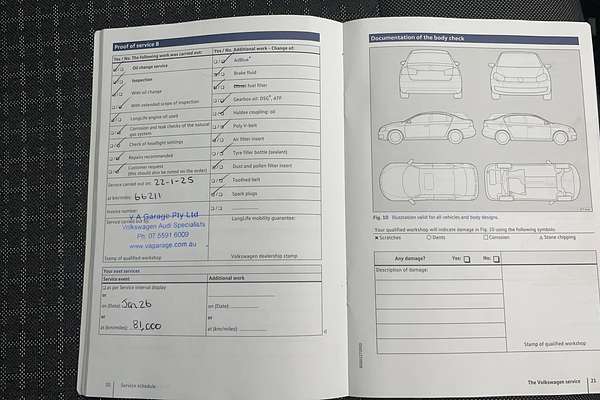 Proof of service 8
Yes / No, The following work was carried out:
Oil change service
Inspection
With oil change
With extended scope of inspection
LongLife engine oil used
Corrosion and leak checks of the natural gas system
Check of headlight settings
Repairs recommended
Customer request
(this should also be noted on the order)
Service carried out on: 22-1-25
at km/miles: 66211
Invoice number:
Service carried out by:
V A Garage Pty Ltd
Volkswagen Audi Specialists
Ph: 07 5591 6009
www.vagarage.com.au
Stamp of qualified workshop
Yes / No, Additional work – Change of:
AdBlue®
Brake fluid
fuel filter
Gearbox oil: DSG®, ATF
Haldex coupling: oil
Poly V-belt
Air filter insert
Tyre filler bottle (sealant)
Dust and pollen filter insert
Toothed belt
Spark plugs
LongLife mobility guarantee:
Volkswagen dealership stamp
Your next services
Service event
Additional work
as per Service interval display
or
on (Date): Jan 26
or
at (km/miles): 81,000
on (Date):
or
at (km/miles):
Service schedule
Documentation of the body check
Fig. 10 Illustration valid for all vehicles and body designs.
Your qualified workshop will indicate damage in Fig. 10 using the following symbols:
× Scratches ○ Dents □ Corrosion △ Stone chipping
Any damage? Yes: ❑ No: ❑
Description of damage:
Stamp of qualified workshop
The Volkswagen service 21